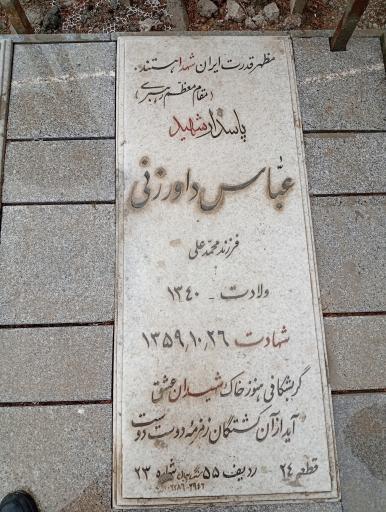 مظهر قدرت ایران شهدا هستند.
(مقام معظم رهبری)
پاسدار شهید
عباس داورزنی
فرزند محمد علی
ولادت - ۱۳۴۰
شهادت ۱۳۵۹٫۱۰٫۲۶
گر بشکافی هنوز خاک شهیدان عشق
آید از آن کشتگان زمزمه دوست دوست
قطعه ۲۴ ردیف ۵۵ شماره ۲۳